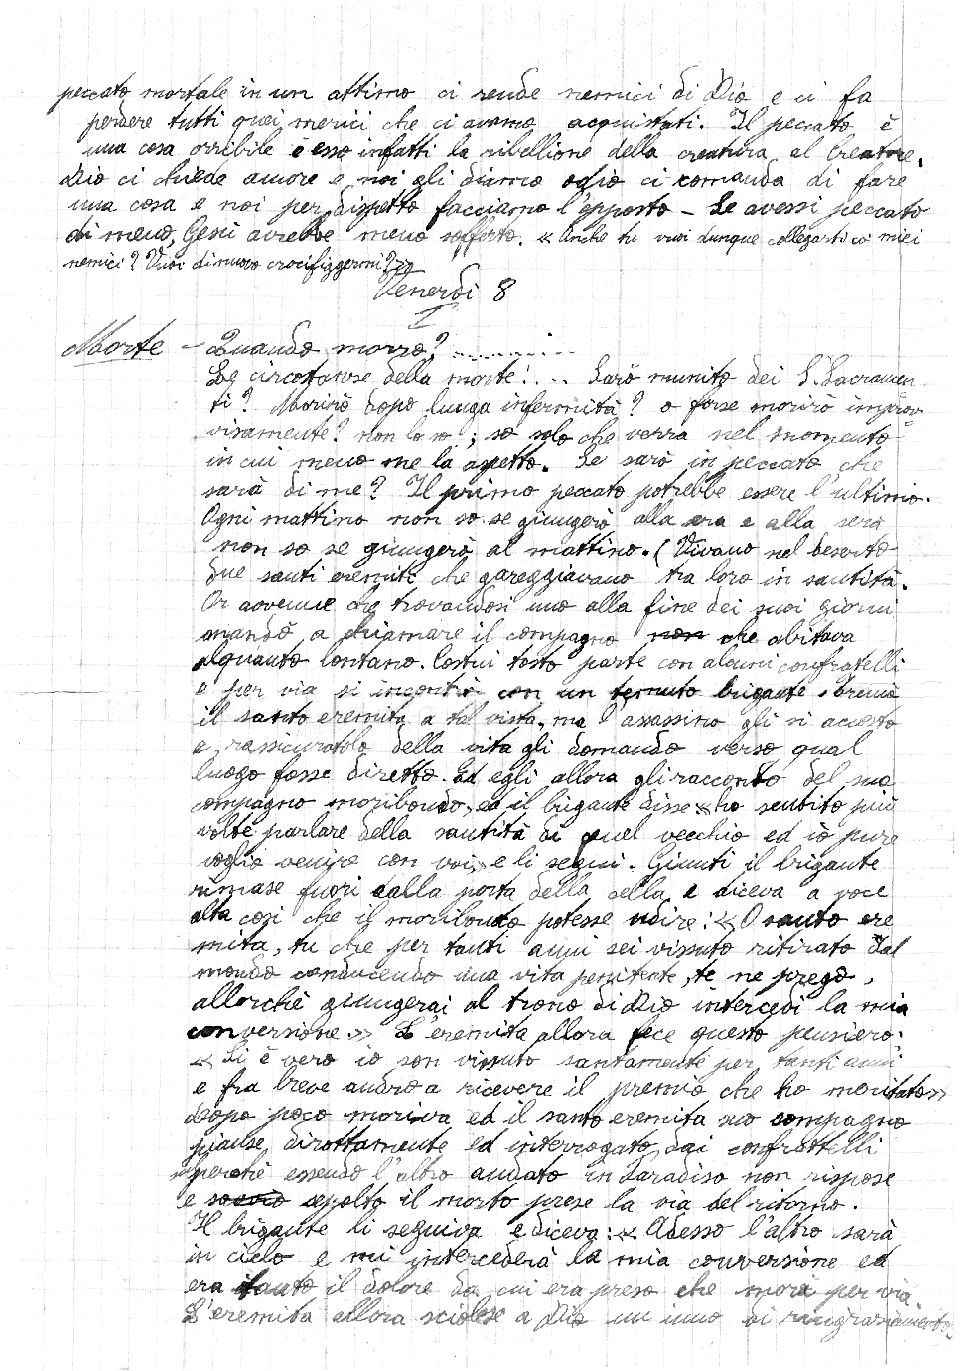 peccato mortale in un attimo ci rende nemici di Dio e ci fa
perdere tutti quei meriti che ci avamo acquistati. Il peccato è
una cosa orribile è esso infatti la ribellione della creatura al Creatore.
Dio ci chiede amore e noi gli diamo odio ci comanda di fare
una cosa e noi per dispetto facciamo l'opposto - Se avessi peccato
di meno, Gesù avrebbe meno sofferto. « Anche tu vuoi dunque collegarti coi miei
nemici? Vuoi di nuovo crocifiggermi? »
Venerdì 8
I
Morte - Quando morrò? ............
Le circostanze della morte! ... Sarò munito dei S. Sacramen
ti? Morirò dopo lunga infermità? o forse morirò improv
visamente? non lo so ; so solo che verrà nel momento
in cui meno me la aspetto. Se sarò in peccato che
sarà di me? Il primo peccato potrebbe essere l'ultimo.
Ogni mattino non so se giungerò alla sera e alla sera
non so se giungerò al mattino. ( Vivano nel deserto
due santi eremiti che gareggiavano tra loro in santità.
Or avvenne che trovandosi uno alla fine dei suoi giorni
mandò a chiamare il compagno non che abitava
alquanto lontano. Costui tosto parte con alcuni confratelli
e per via si incontrò con un temuto brigante. Tremò
il santo eremita a tal vista, ma l'assassino gli si accostò
e, rassicuratolo della vita gli domandò verso qual
luogo fosse diretto. Ed egli allora gli raccontò del suo
compagno moribondo, ed il brigante disse « ho sentito più
volte parlare della santità di quel vecchio ed io pure
voglio venire con voi » e li seguì. Giunti il brigante
rimase fuori dalla porta della cella e diceva a voce
alta così che il moribondo potesse udire: « O santo ere
mita, tu che per tanti anni sei vissuto ritirato dal
mondo conducendo una vita penitente, te ne prego,
allorchè giungerai al trono di Dio intercedi la mia
conversione. » L'eremita allora fece questo pensiero:
« Sì è vero io son vissuto santamente per tanti anni
e fra breve andrò a ricevere il premio che ho meritato »
dopo poco moriva ed il santo eremita suo compagno
pianse dirottamente ed interrogato dai confratelli
perchè essendo l'altro andato in Paradiso non rispose
e sepolto il morto prese la via del ritorno.
Il brigante li seguiva e diceva: « Adesso l'altro sarà
in cielo e mi intercederà la mia conversione ed
era tanto il dolore da cui era preso che morì per via.
L'eremita allora sciolse a Dio un inno di ringraziamento.